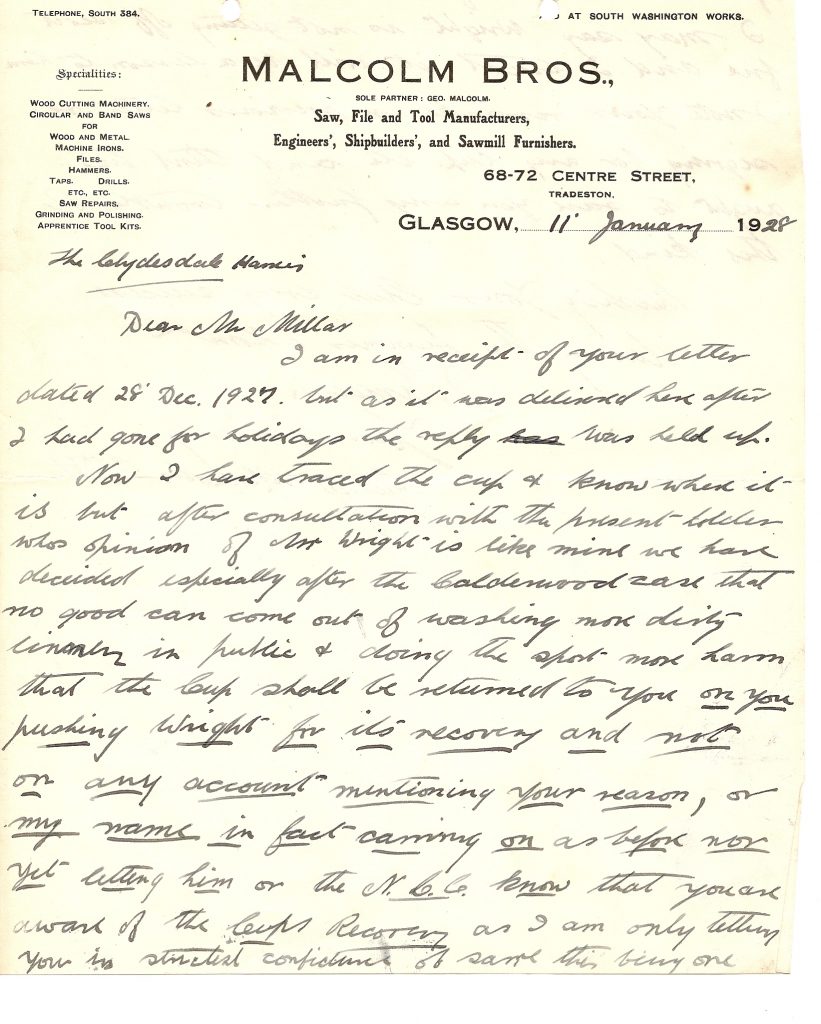 TELEPHONE, SOUTH 384.
AT SOUTH WASHINGTON WORKS.
Specialities:
WOOD CUTTING MACHINERY.
CIRCULAR AND BAND SAWS
FOR
WOOD AND METAL.
MACHINE IRONS.
FILES.
HAMMERS.
TAPS. DRILLS.
ETC., ETC.
SAW REPAIRS.
GRINDING AND POLISHING.
APPRENTICE TOOL KITS.
MALCOLM BROS.,
SOLE PARTNER: GEO. MALCOLM.
Saw, File and Tool Manufacturers,
Engineers', Shipbuilders', and Sawmill Furnishers.
68-72 CENTRE STREET,
TRADESTON.
GLASGOW, 11 January 1928
The Clydesdale Harriers
Dear Mr Millar
I am in receipt of your letter
dated 28 Dec. 1927. but as it was delivered here after
I had gone for holidays the reply was held up.
Now I have traced the cup & know where it
is but after consultation with the present holder
whos opinion of Mr Wright is like mine we have
decided especially after the Calderwood case that
no good can come out of washing more dirty
in public & doing the sport more harm
that the Cup shall be returned to you on you
pushing Wright for its recovery and not
on any account mentioning your reason, or
my name in fact carrying on as before nor
yet letting him or the N.C.C. know that you are
aware of the Cups Recovery as I am only telling
you in strictest confidence of same this being one